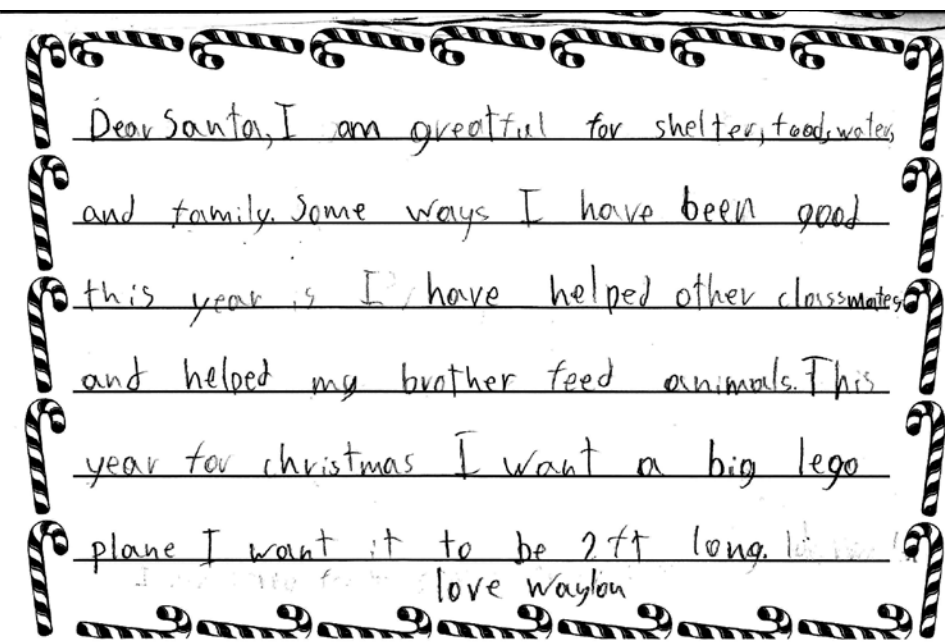 Dear Santa, I am greatful for shelter, food, water,
and family. Some ways I have been good
this year is I have helped other classmates
and helped my brother feed animals. This
year for christmas I want a big lego
plane I want it to be 2ft long.
love Waylon